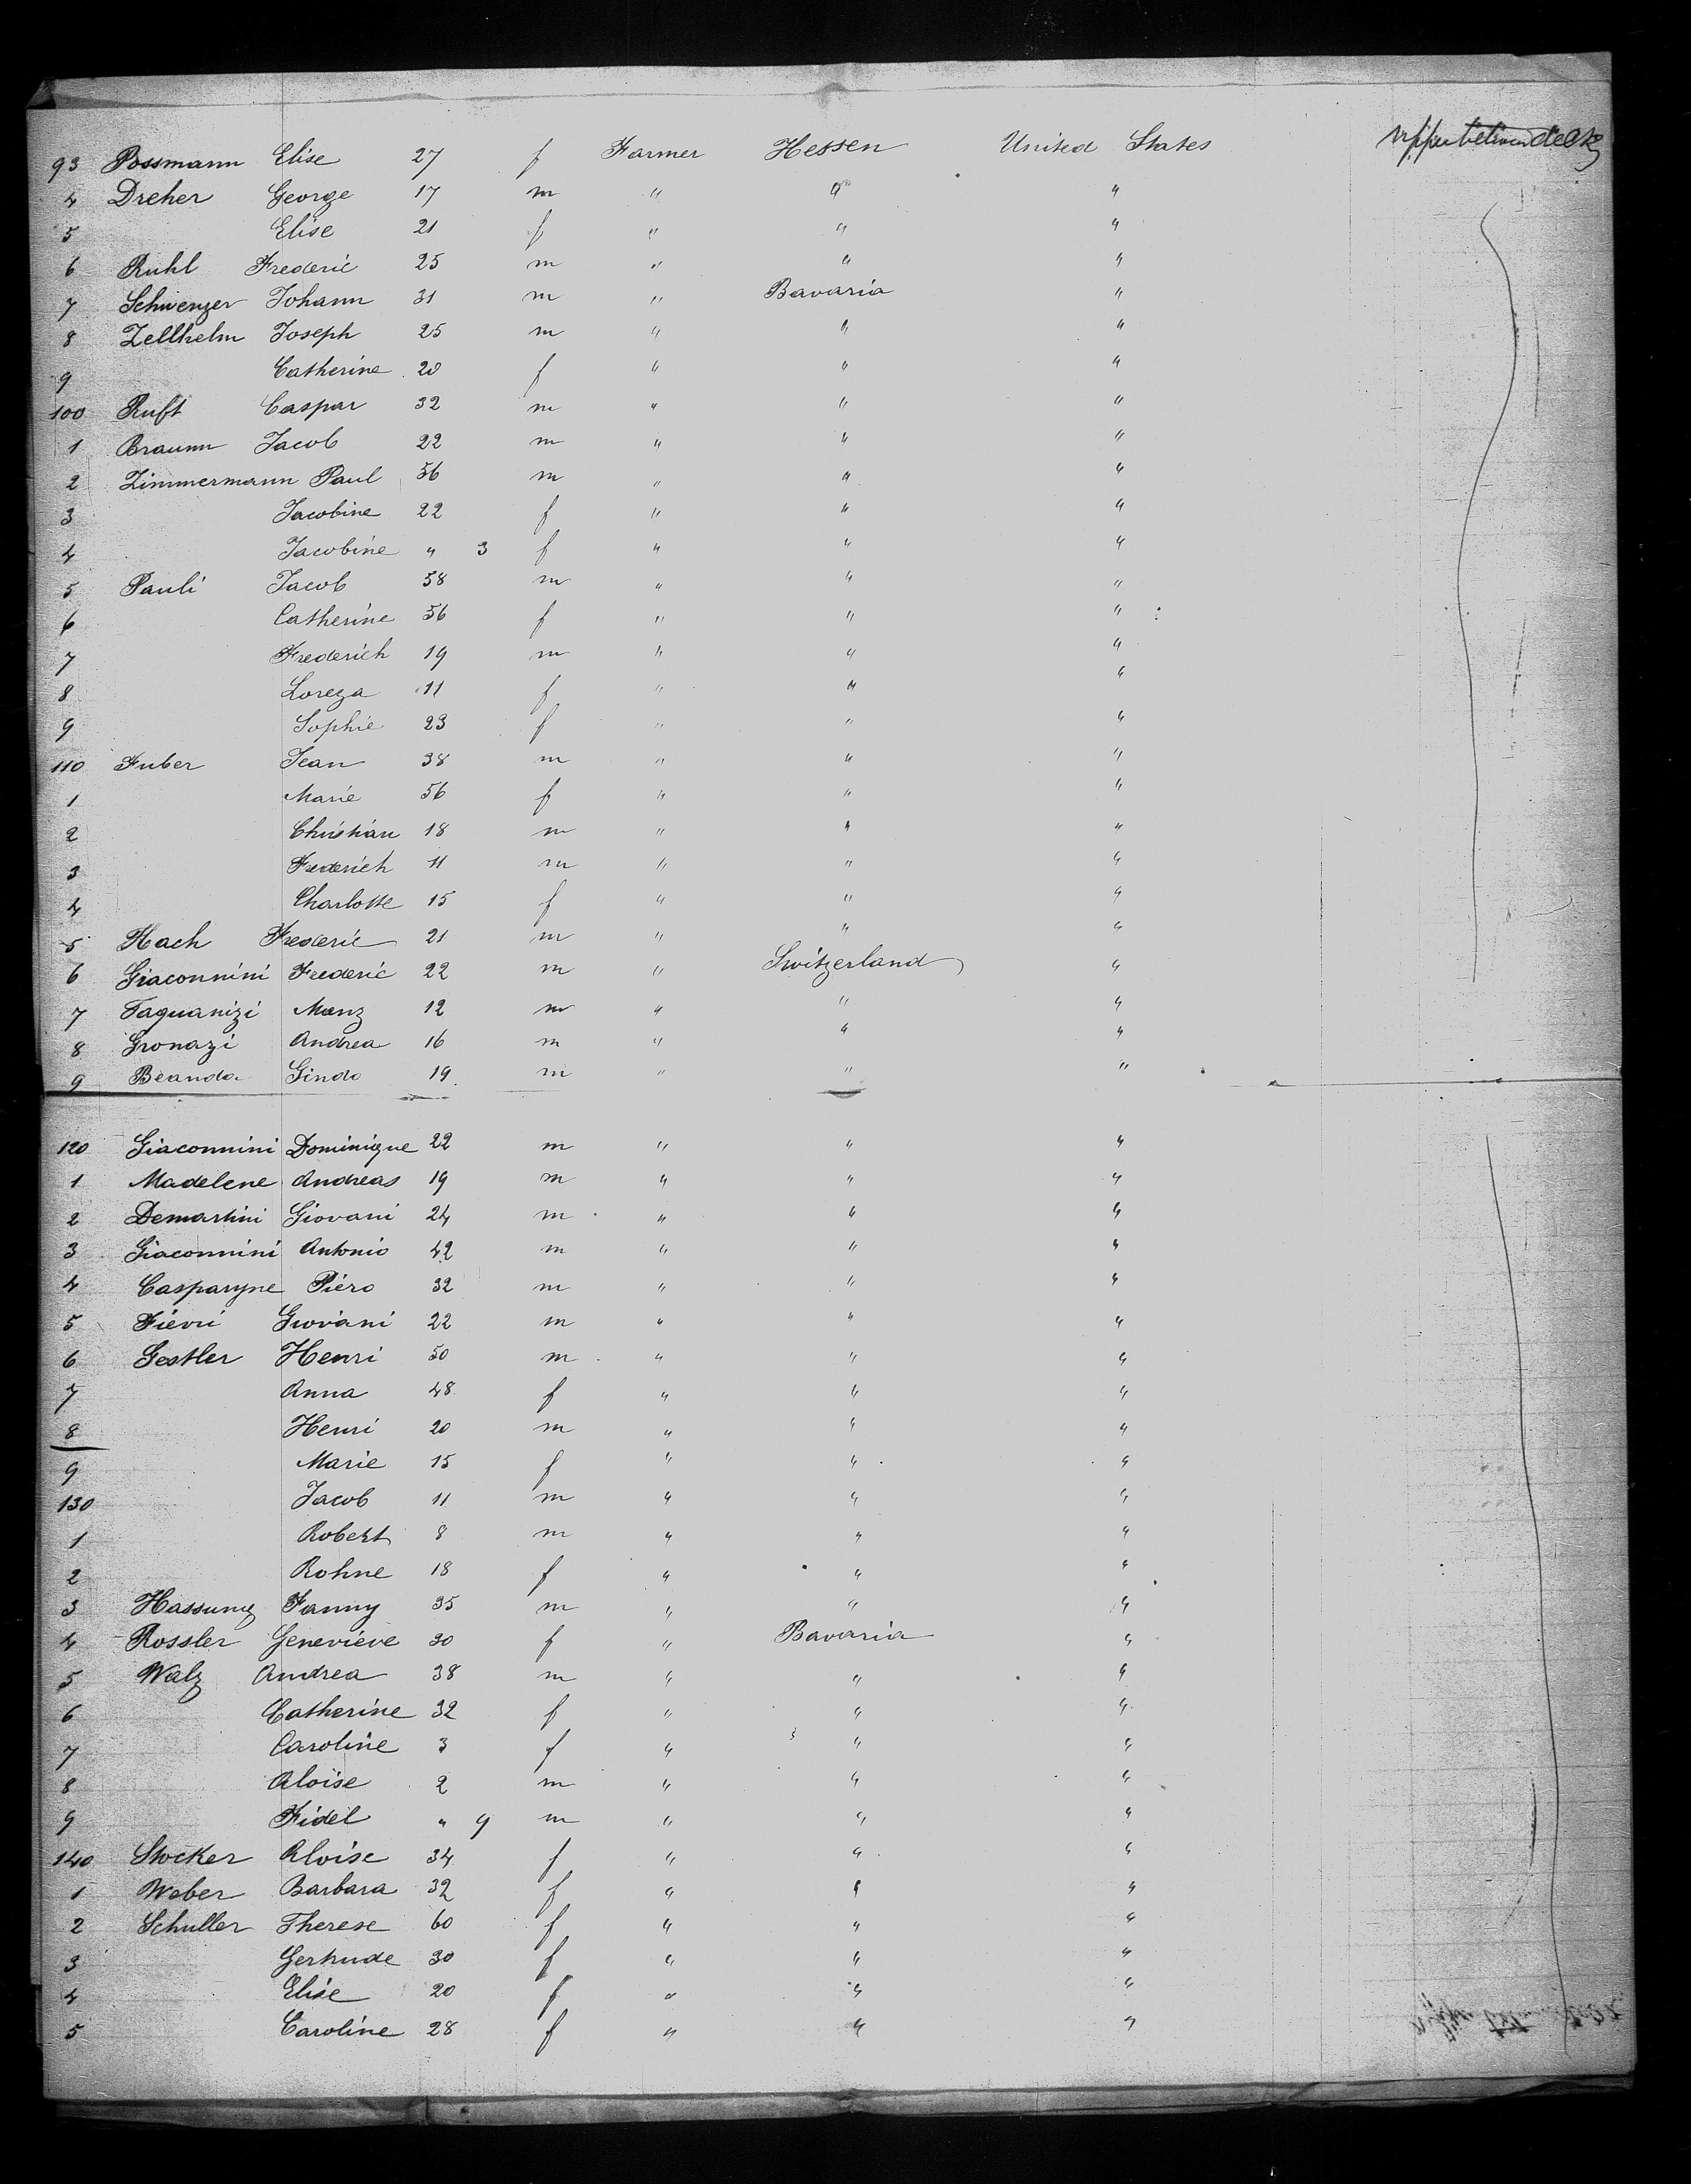 93 Possmann Elise 27 f Farmer Hessen United States upper between decks
4 Dreher George 17 m " " "
5 Elise 21 f " " "
6 Ruhl Frederic 25 m " " "
7 Schwenzer Johann 31 m " Bavaria "
8 Zellhelm Joseph 25 m " " "
9 Catherine 20 f " " "
100 Ruft Caspar 32 m " " "
1 Braunn Jacob 22 m " " "
2 Zimmermann Paul 56 m " " "
3 Jacobine 22 f " " "
4 Jacobine " 3 f " " "
5 Pauli Jacob 58 m " " "
6 Catherine 56 f " " "
7 Frederich 19 m " " "
8 Loreza 11 f " " "
9 Sophie 23 f " " "
110 Fuber Jean 38 m " " "
1 Marie 56 f " " "
2 Christian 18 m " " "
3 Frederich 11 m " " "
4 Charlotte 15 f " " "
5 Hach Frederic 21 m " " "
6 Giaconnini Frederic 22 m " Switzerland "
7 Taguanizi Manz 12 m " " "
8 Gronazi Andrea 16 m " " "
9 Beanda Gindo 19 m " " "
120 Giaconnini Dominique 22 m " " "
1 Madelene Andreas 19 m " " "
2 Demartini Giovani 24 m " " "
3 Giaconnini Antonio 42 m " " "
4 Casparyne Piero 32 m " " "
5 Fievri Giovani 22 m " " "
6 Gestler Henri 50 m " " "
7 Anna 48 f " " "
8 Henri 20 m " " "
9 Marie 15 f " " "
130 Jacob 11 m " " "
1 Robert 8 m " " "
2 Rohne 18 f " " "
3 Hassung Fanny 35 m " " "
4 Rossler Genevieve 30 f " Bavaria "
5 Walz Andrea 38 m " " "
6 Catherine 32 f " " "
7 Caroline 3 f " " "
8 Aloise 2 m " " "
9 Fidel " 9 m " " "
140 Stocker Aloise 34 f " " "
1 Weber Barbara 32 f " " "
2 Schuller Therese 60 f " " "
3 Gertrude 30 f " " "
4 Elise 20 f " " "
5 Caroline 28 f " " "